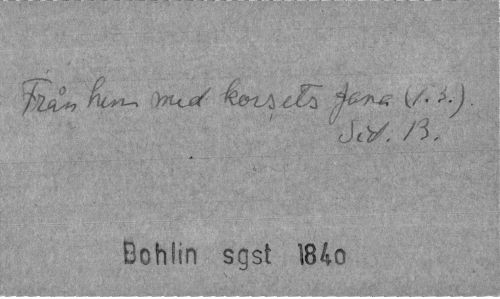 Från hem med korsets fana (1.3.).
Sid. B.
Bohlin sgst 1840